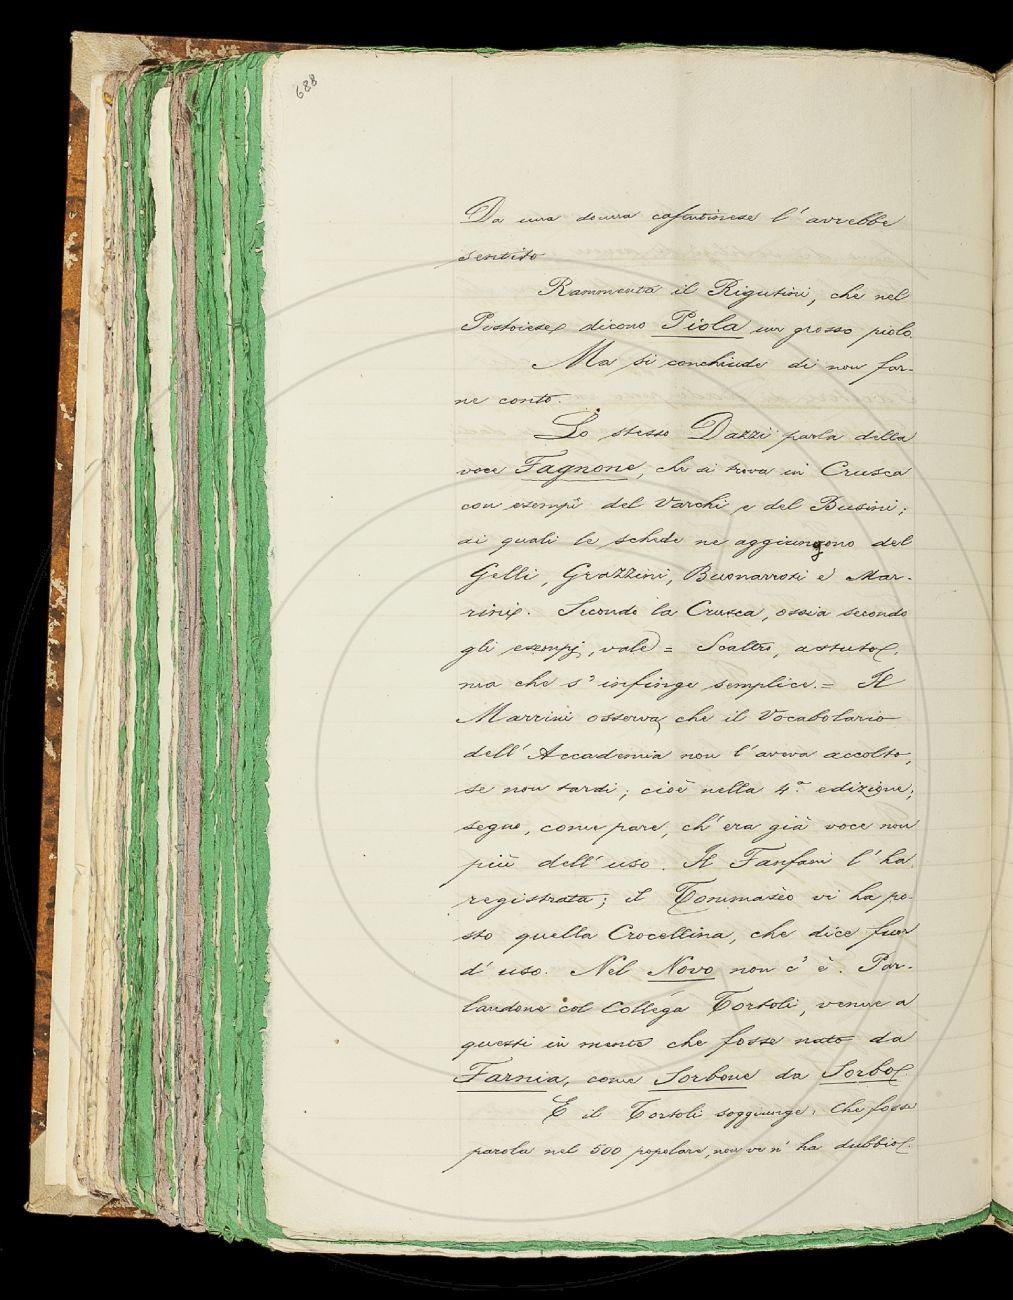 688
Da una donna casentinese l' avrebbe
sentito.
Rammenta il Rigutini, che nel
Pistoiese dicono Piola un grosso piolo.
Ma si conchiude di non far-
ne conto.
Lo stesso Dazzi parla della
voce Fagnone, che si trova in Crusca
con esempi del Varchi e del Busini;
ai quali le schede ne aggiungono del
Gelli, Grazzini, Buonarroti e Mar-
rini. Secondo la Crusca, ossia secondo
gli esempj, vale = Scaltro, astuto,
ma che s' infinge semplice. = Il
Marrini osserva che il Vocabolario
dell' Accademia non l' aveva accolto,
se non tardi; cioè nella 4.a edizione;
segno, come pare, ch' era già voce non
più dell' uso. Il Fanfani l' ha
registrata; il Tommasèo vi ha po-
sto quella Crocellina, che dice fuor
d' uso. Nel Novo non c' è. Par-
landone col Collega Tortoli, venne a
questi in mente che fosse nato da
Farnia, come Sorbone da Sorbo.
E il Tortoli soggiunge: Che fosse
parola nel 500 popolare, non ve n' ha dubbio.